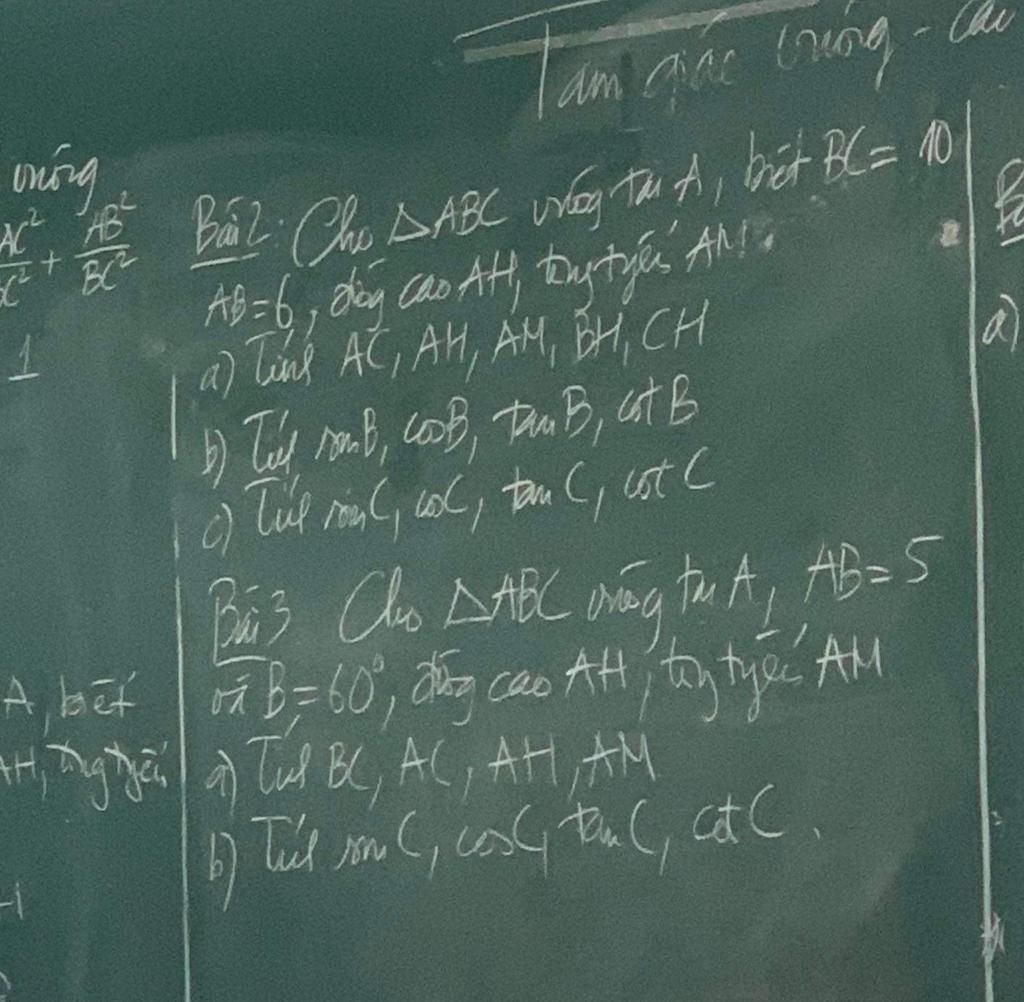 Tam giác vuông - Cân
vuông
AC²/BC² + AB²/BC²
1
Bài 2: Cho △ABC vuông tại A, biết BC = 10
AB = 6, đường cao AH, trung tuyến AM.
a) Tính AC, AH, AM, BH, CH
b) Tính sinB, cosB, tanB, cotB
c) Tính sinC, cosC, tanC, cotC
Bài 3 Cho △ABC vuông tại A, AB = 5
và B = 60°, đường cao AH, trung tuyến AM
a) Tính BC, AC, AH, AM
b) Tính sinC, cosC, tanC, cotC.
A, biết
AH, trung tuyến
-1
a)